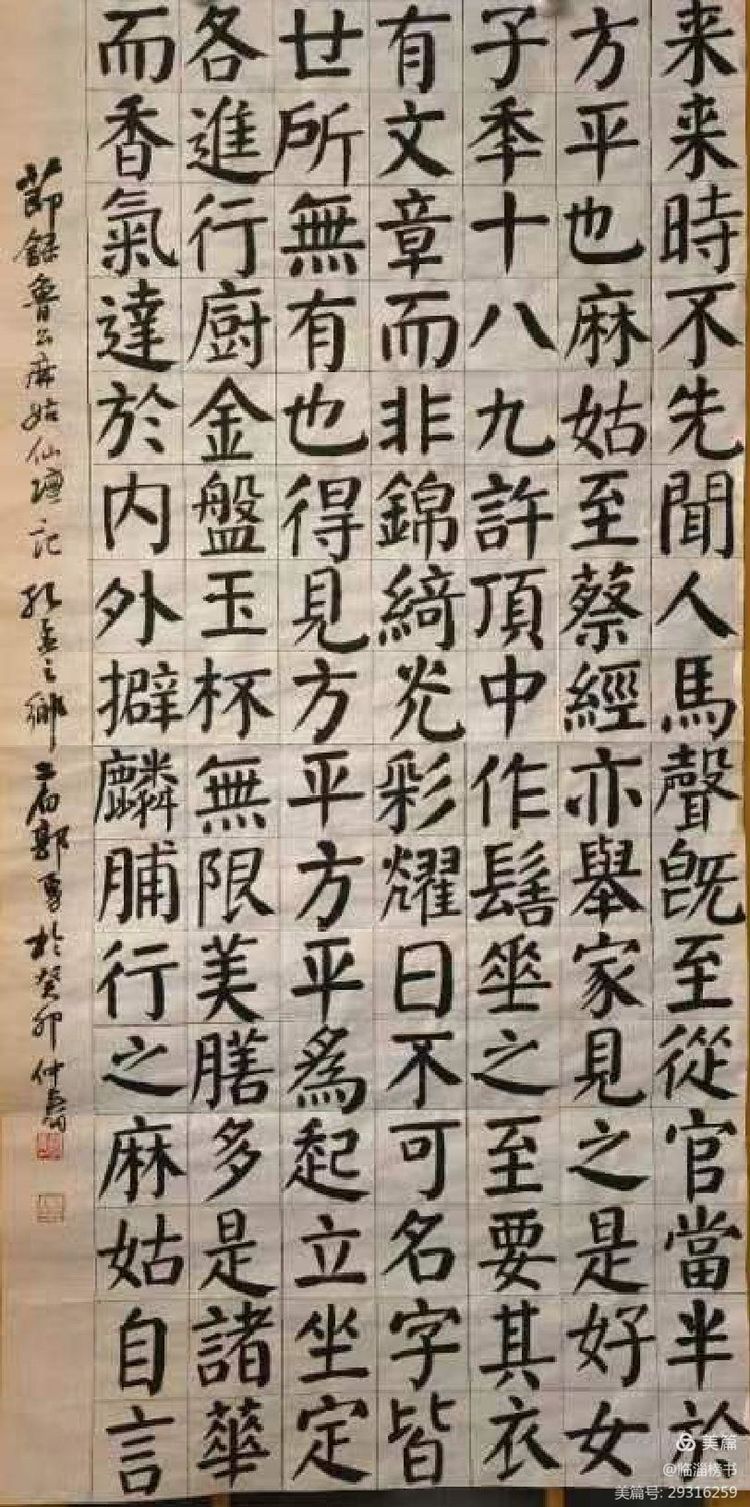 来来時不先聞人馬聲既至從官當半於
方平也麻姑至蔡經亦舉家見之是好女
子年十八九許頂中作髻坐之至要其衣
有文章而非錦綺光彩耀日不可名字皆
世所無有也得見方平方平為起立坐定
各進行厨金盤玉杯無限美膳多是諸華
而香氣達於内外擗麟脯行之麻姑自言
節録魯公麻姑仙壇記 孔孟之鄉 郭勇於癸卯仲春
美篇
@临淄榜书
美篇号: 29316259